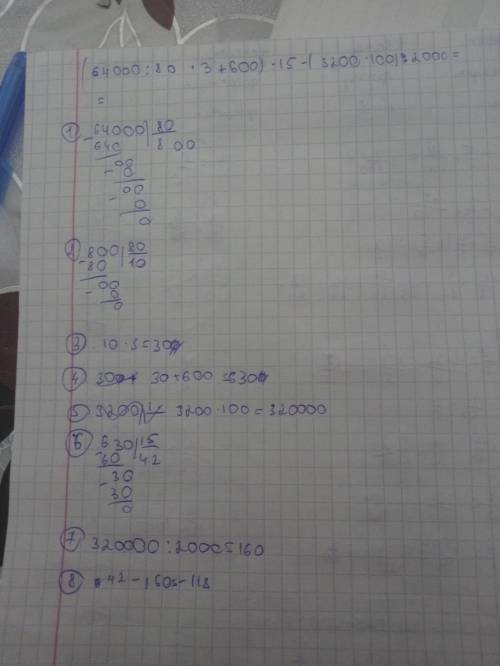 (64000:80 · 3+600) - 15 - (3200·100):2000=
=
1) 64000 | 80
- 640 800
00
- 0
00
- 0
0
2) 800 | 80
- 80 10
- 00
0
0
3) 10·3=30
4) 30+600=630
5) 3200 3200·100=320000
6) 630 | 15
- 60 42
- 30
30
0
7) 320000:2000=160
8) 42-160=-118